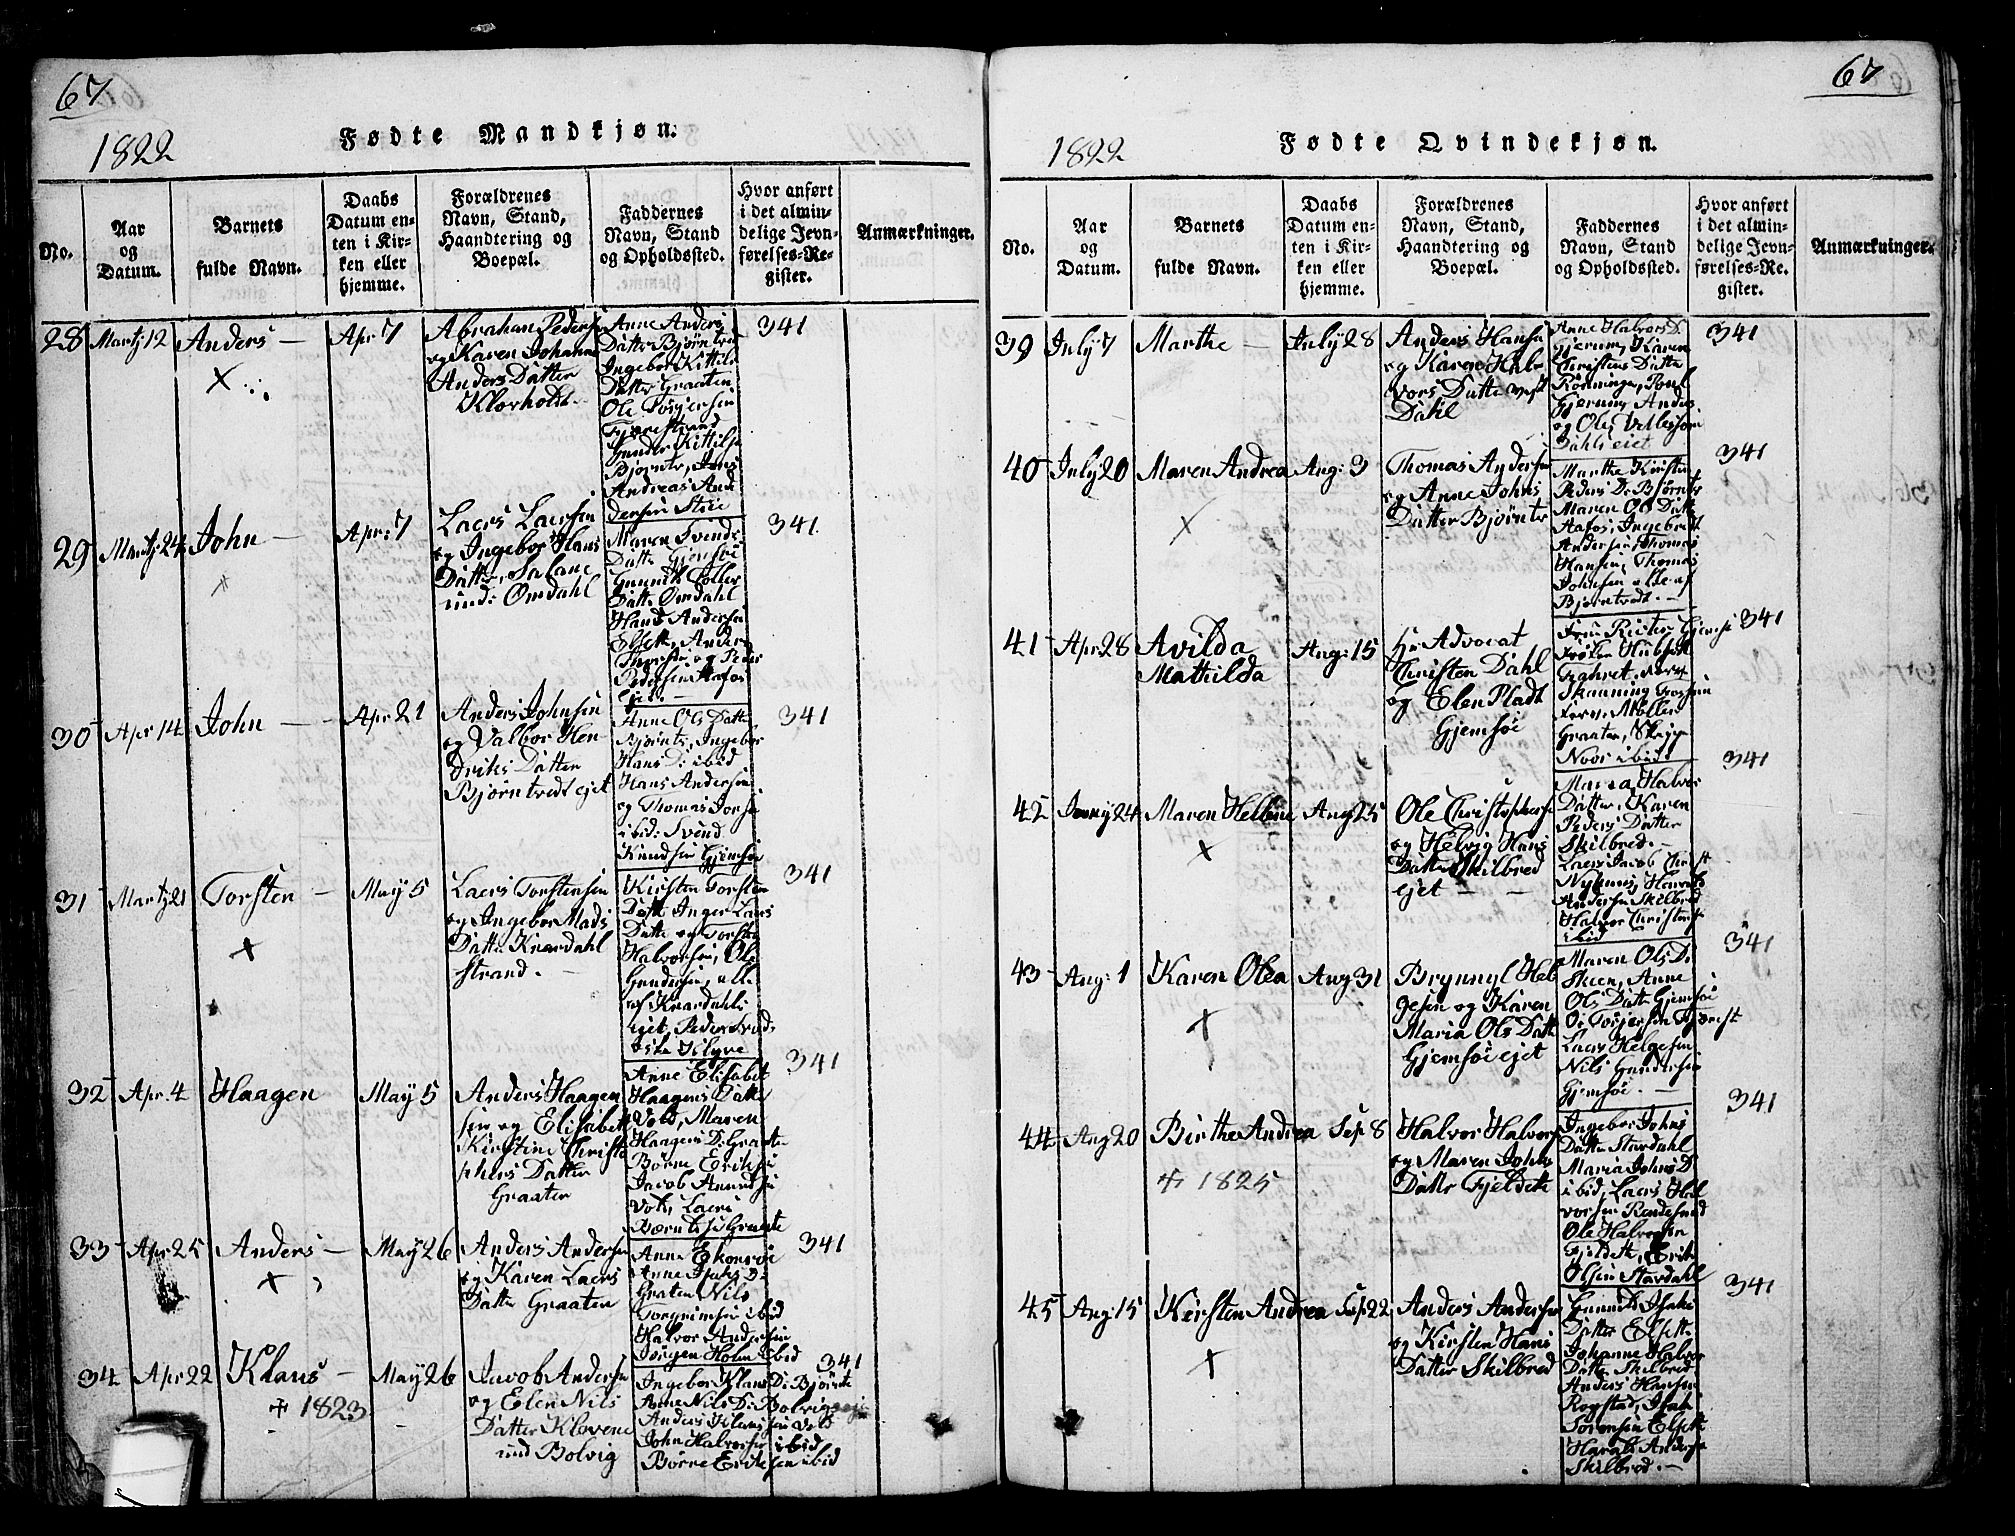 67
1822
Fødte Mandkjøn.
No.
Aar
og
Datum.
Barnets
fulde Navn.
Daabs
Datum en-
ten i Kir-
ken eller
hjemme.
Forældrenes
Navn, Stand,
Haandtering og
Boepæl.
Faddernes
Navn, Stand
og Opholdssted.
Hvor anført
i det almin-
delige Jevn-
førelses-Re-
gister.
Anmærkninger.
28 Martz 12 Anders — Apr 7
Abrahan Pedersen
og Karen Johanne
Anders Datter
Klovholt
Anne Anders
Datter Bjørntv
Ingebor Kittils
Datter Graaten
Ole Torjersen
Fjærestrand
Gunder Kittilse
Bjørntv, Jens
Andreas And
dersen Stive
341
29 Martz 24 John — Apr: 7
Laers Laersen
og Ingebor Hans
Datter
und: Omdahl
Maren Svends
Datte Gjemsøe
Gunnild
Datte Omdahl
Hans Andersen
Pedersen Aafos
341
30 Apr 14 John — Apr 21
Anders Johnsen
og Valbor Hen
driks Datter
Bjørntvedt ejet
Anne Ols Datte
Bjørntv, Ingebor
Hans D: ibid
Hans Andersen
og Thomas
ibid: Svend
Knudsen Gjemsøe
341
31 Martz 21 Torsten — May 5
Laers Torstensen
og Ingebor Mads
Datter Knardahl
strand. —
Kirsten Torsten
Datt Inger Laers
Datte og Torsten
Halvorsen, Ole
Gundersen, alle
af Knardahls
ejet, Peder
Klyve
341
32 Apr. 4 Haagen May 5
Anders Haagen
sen og Elisabeth
Kirstine Christo
phers Datter
Graaten
Anne Elisabet
Haagens Datte
Vold, Maren
Haagens D: Graate
Børne Eriksen
Jacob Amundsen
Vold, Laers
Berntsen Graate
341
33 Apr 25 Anders — May 26
Anders Andersen
og Karen Laers
Datter Graaten
Anne Ekornrøe
Anne Isaks D:
Graten Nils
Torgrimsen ibid
Halvor Andersen
Jørgen Holm ibid
341
34 Apr 22 Klaus — May 26
+ 1823
Jacob Andersen
og Elen Nils
Datter Klovene
und Bolvig
Ingebor Klaus D: Bjørnte
Anne Nils D: Bolvig
Anders Klausen
John Halvorsen ibid
Børre Eriksen ibid
341
67
1822
Fødte Qvindekjøn.
No.
Aar
og
Datum.
Barnets
fulde Navn.
Daabs
Datum en-
ten i Kir-
ken eller
hjemme.
Forældrenes
Navn, Stand,
Haandtering og
Boepæl.
Faddernes
Navn, Stand
og Opholdssted.
Hvor anført
i det almin-
delige Jevn-
førelses-Re.
gister.
Anmærkninger.
39 July 7 Marthe — July 28
Anders Hansen
og Karen Hal
vors Datte
Dahl
Anne Halvors D:
Gjerum, Karen
Christens Datte
Rønninge, Poul
Gjerum, Anders
og Ole Villessøn
Dahls eiet
341
40 July 20 Maren Andrea Aug: 3
Thomas Andersen
og Anne Johns
Datter Bjørntv
Marthe Kirstin
Peders D: Bjørntv
Maren Ols Datte
Aafos, Ingebret
Andersen Thomas
Hansen, Thomas
Johnsen alle af
Bjørntvedt. —
341
41 Apr 28 Avilda
Mathilda
Aug: 15
Hr Advocat
Christen Dahl
og Elen Pladt
Gjemsøe
Frue Rieter Gjemsøe
Frøken
Skanning
Møller
Graaten,
Noor ibid
341
42 Juny 24 Maren Helbine Aug 25
Ole Christophersen
og Helvig Hans
Datter Skilbred
ejet — —
Maren Halvor
Datter, Karen
Peders Datter
Skilbred. —
Laers Jacob
Andersen Skilbred
Halvor Christense
ibid
341
43 Aug: 1 Karen Olea Aug 31
Brynnyl Hel
gesen og Karen
Maria Ols Datt
Gjemsøe ejet
Maren Ols D:
Skeen, Anne
Ols Datte Gjemsøe
Ole Torjersen Fjærest
Laers Helgesen
Nils Gundersen
Gjemsøe. —
341
44 Aug 20 Birthe Andrea Sep 8
+ 1825
Halvor Halvors
og Maren Johns
Datter Fjeldete
Ingebor Johns
Datte Stavdahl
Maria Johns D:
ibid, Laers Hal
vorsen
Ole Halvorsen
Fjeldete, Erik
Olsen Stavdahl
341
45 Aug: 15 Kirsten Andrea Sep 22
Anders Andersen
og Kirsten Hans
Datter Skilbred
Gunild Isaks
Datter
Johanne Halvor
Datte Skilbred
Anders Hansen
Rogstad, Isak
Sørensen
Anderse
Skilbred. —
341